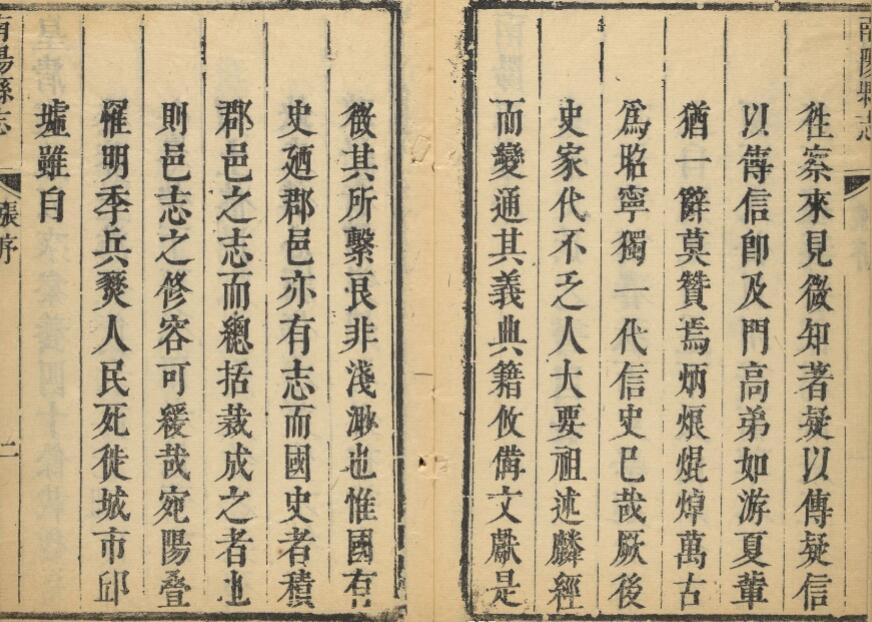 南陽縣志
徃察來見微知著疑以傳疑信
以傳信卽及門高弟如游夏輩
猶一辭莫贊焉炳烺焜燁萬古
爲昭寧獨一代信史已哉厥後
史家代不乏人大要祖述麟經
而變通其義典籍攸備文獻是
徵其所繫良非淺渺也惟國有
史廼郡邑亦有志而國史者積
郡邑之志而總括裁成之者也
則邑志之修容可緩哉宛陽疊
罹明季兵燹人民死徙城市邱
墟雖自
南陽縣志
張序
二